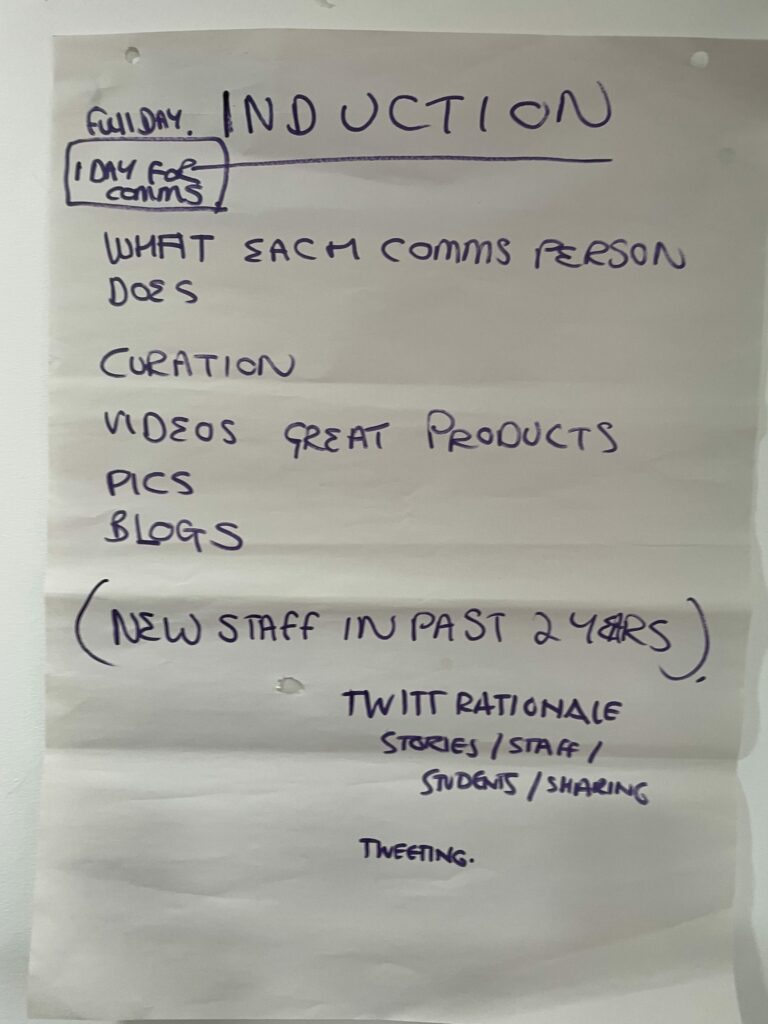 FULL DAY. INDUCTION
1 DAY FOR
COMMS
WHAT EACH COMMS PERSON
DOES
CURATION
VIDEOS GREAT PRODUCTS
PICS
BLOGS
(NEW STAFF IN PAST 2 YEARS).
TWITT RATIONALE
STORIES / STAFF /
STUDENTS / SHARING
TWEETING.